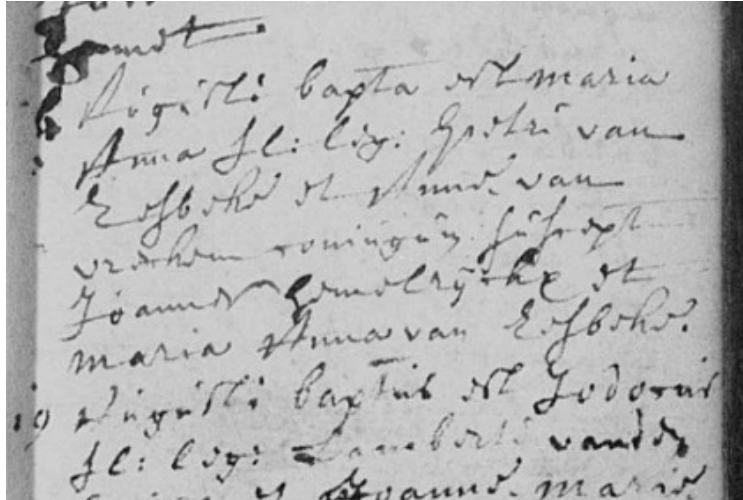 Augusti bapta est maria
Anna fl: leg: petri van
Eesbeke et Anne van
vrechem coniugum suscept
Joannes hemelrijckx et
maria Anna van Eesbeke.
19 Augusti baptus est Jodocus
fl: leg: Lamberti vanden
et Joanne marie